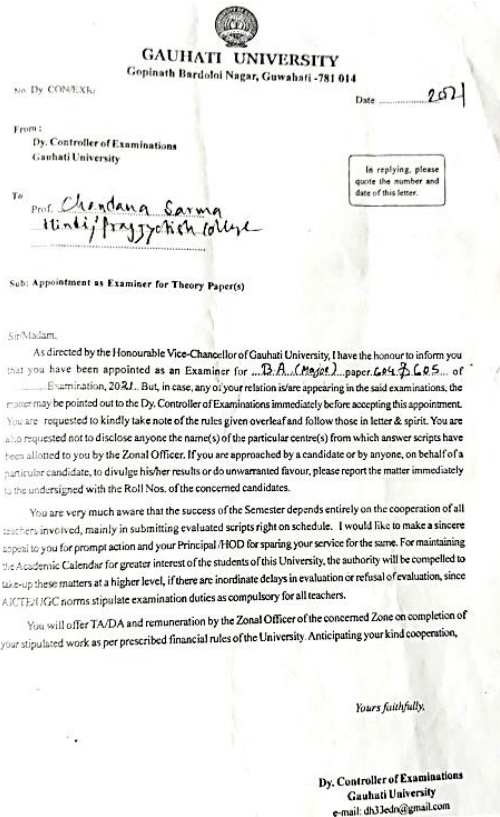 GAUHATI UNIVERSITY
Gopinath Bardoloi Nagar, Guwahati -781 014
No. Dy CON/EXR/
Date .................2021
From :
Dy. Controller of Examinations
Gauhati University
In replying, please
quote the number and
date of this letter.
To
Prof. Chandana Sarma
Hindi, Pragjyotish College
Sub: Appointment as Examiner for Theory Paper(s)
Sir/Madam,
As directed by the Honourable Vice-Chancellor of Gauhati University, I have the honour to inform you
that you have been appointed as an Examiner for ...B.A. (Major)...paper. 604 & 605 ... of
............Examination, 2021.. But, in case, any of your relation is/are appearing in the said examinations, the
matter may be pointed out to the Dy. Controller of Examinations immediately before accepting this appointment.
You are requested to kindly take note of the rules given overleaf and follow those in letter & spirit. You are
also requested not to disclose anyone the name(s) of the particular centre(s) from which answer scripts have
been allotted to you by the Zonal Officer. If you are approached by a candidate or by anyone, on behalf of a
particular candidate, to divulge his/her results or do unwarranted favour, please report the matter immediately
to the undersigned with the Roll Nos. of the concerned candidates.
You are very much aware that the success of the Semester depends entirely on the cooperation of all
teachers involved, mainly in submitting evaluated scripts right on schedule. I would like to make a sincere
appeal to you for prompt action and your Principal /HOD for sparing your service for the same. For maintaining
the Academic Calendar for greater interest of the students of this University, the authority will be compelled to
take-up these matters at a higher level, if there are inordinate delays in evaluation or refusal of evaluation, since
AICTE/UGC norms stipulate examination duties as compulsory for all teachers.
You will offer TA/DA and remuneration by the Zonal Officer of the concerned Zone on completion of
your stipulated work as per prescribed financial rules of the University. Anticipating your kind cooperation,
Yours faithfully,
Dy. Controller of Examinations
Gauhati University
e-mail: dh33edn@gmail.com